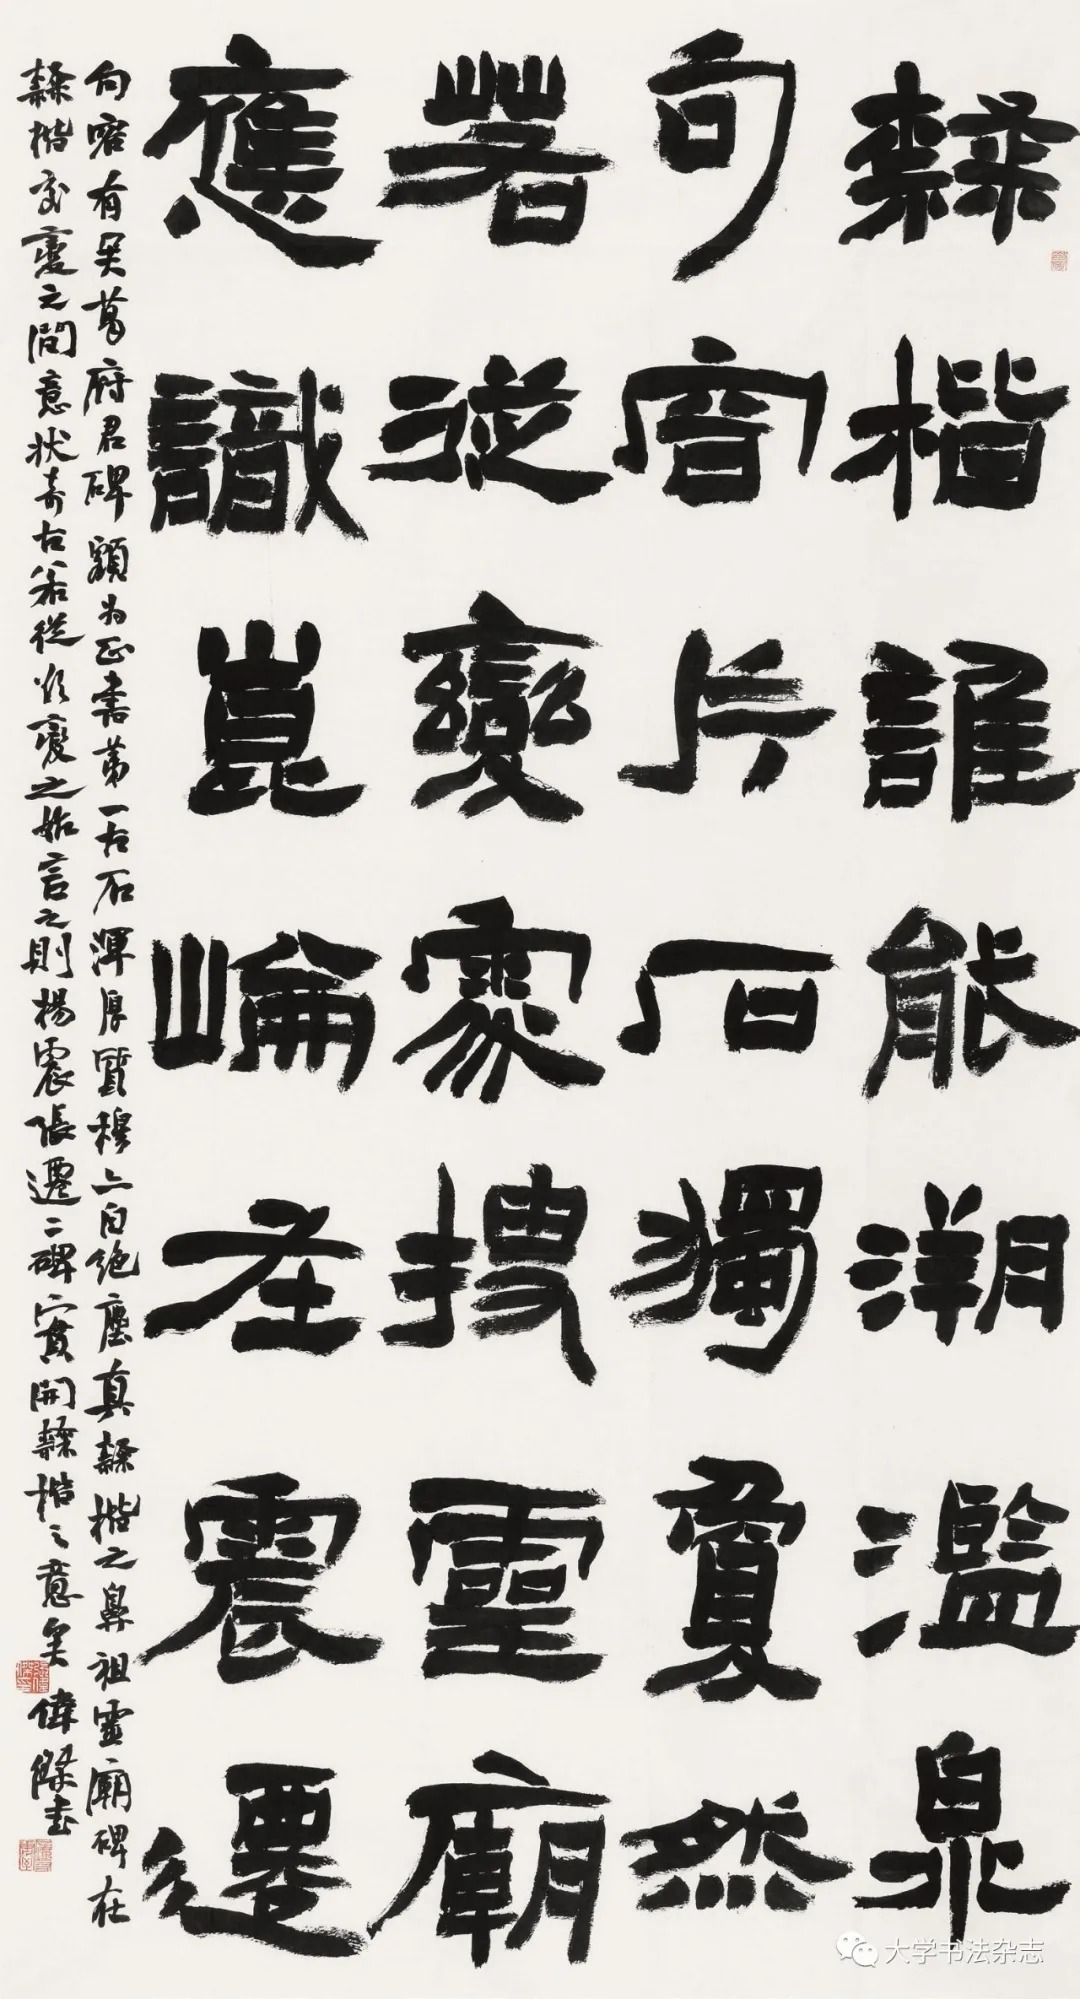 隸楷誰能溯濫泉
句容片石獨敻然
若從變處搜靈廟
應識崑崙在震遷
句容有吳葛府君碑額為正書第一古石渾厚質穆亦自絕塵真隸楷之鼻祖靈廟碑在
隸楷交變之間意狀奇古若從次變之始言之則楊震張遷二碑實開隸楷之意矣 偉傑書
大学书法杂志